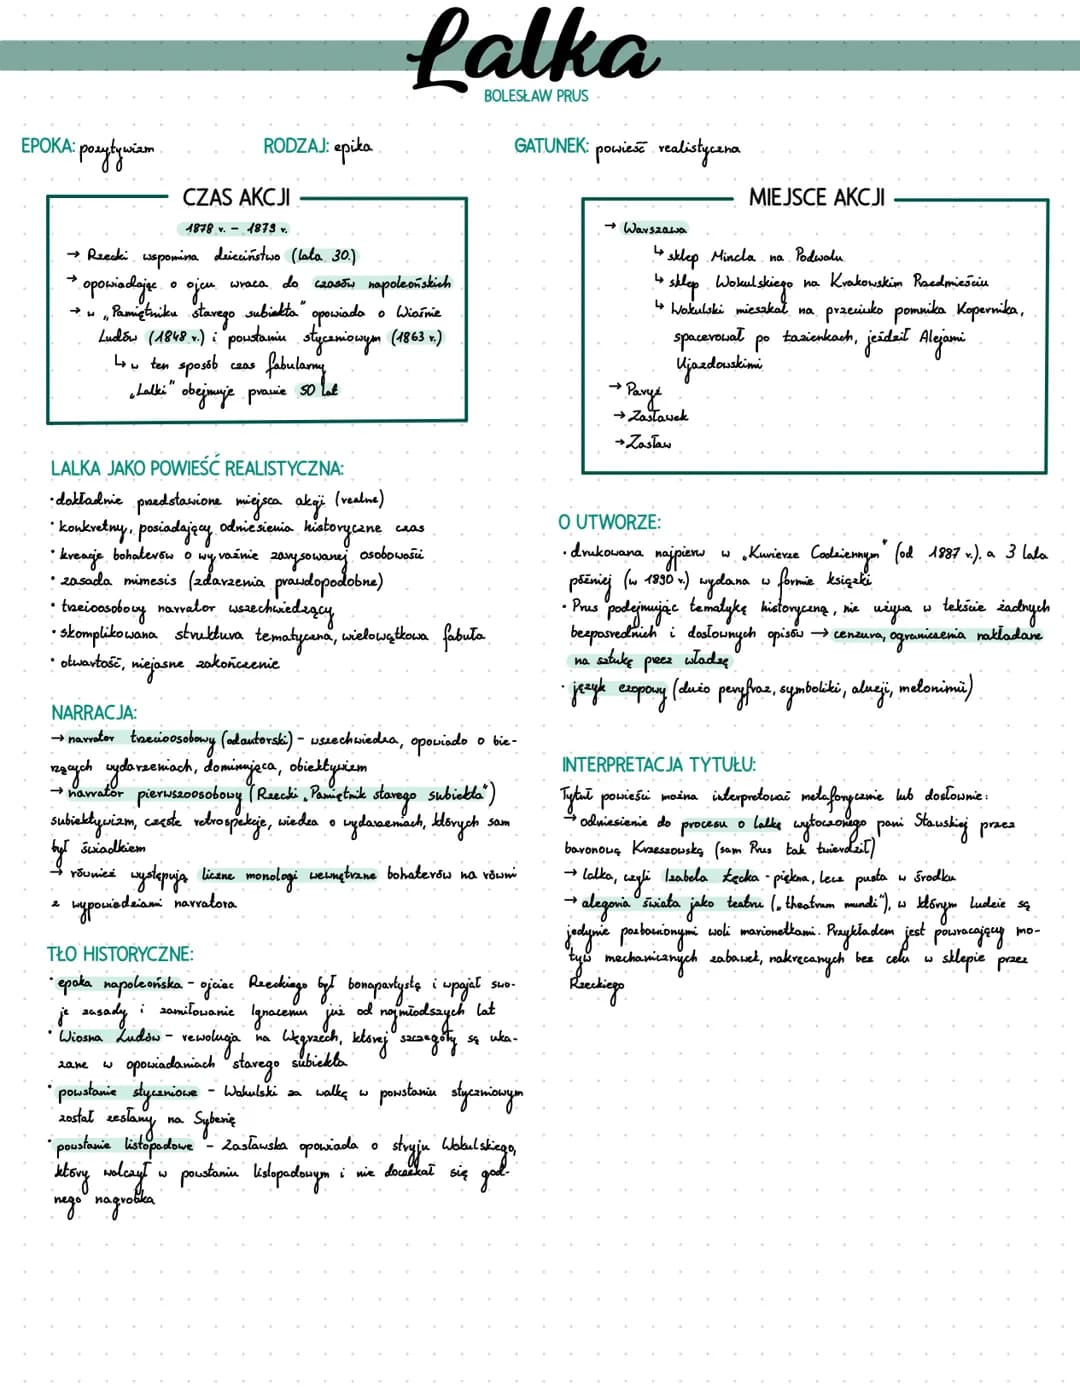 Lalka
BOLESŁAW PRUS
EPOKA: pozytywizm
RODZAJ: epika
GATUNEK: powieść realistyczna
CZAS AKCJI
1878 r. - 1879 r.
→ Rzecki wspomina dzieciństwo (lata 30.)
→ opowiadając o ojcu wraca do czasów napoleońskich
→ w „Pamiętniku starego subiekta" opowiada o Wiośnie
Ludów (1848 r.) i powstaniu styczniowym (1863 r.)
↳ w ten sposób czas fabularny
„Lalki" obejmuje prawie 50 lat
MIEJSCE AKCJI
→ Warszawa
↳ sklep Mincla na Podwalu
↳ sklep Wokulskiego na Krakowskim Przedmieściu
↳ Wokulski mieszkał na przeciwko pomnika Kopernika,
spacerował po Łazienkach, jeździł Alejami
Ujazdowskimi
→ Paryż
→ Zasławek
→ Zasław
LALKA JAKO POWIEŚĆ REALISTYCZNA:
• dokładnie przedstawione miejsca akcji (realne)
• konkretny, posiadający odniesienia historyczne czas
• kreacje bohaterów o wyraźnie zarysowanej osobowości
• zasada mimesis (zdarzenia prawdopodobne)
• trzecioosobowy narrator wszechwiedzący
• skomplikowana struktura tematyczna, wielowątkowa fabuła
• otwartość, niejasne zakończenie
NARRACJA:
→ narrator trzecioosobowy (odautorski) - wszechwiedza, opowiada o bie-
żących wydarzeniach, dominująca, obiektywizm
→ narrator pierwszoosobowy (Rzecki „Pamiętnik starego subiekta")
subiektywizm, częste retrospekcje, wiedza o wydarzeniach, których sam
był świadkiem
→ również występują liczne monologi wewnętrzne bohaterów na równi
z wypowiedziami narratora
TŁO HISTORYCZNE:
• epoka napoleońska - ojciec Rzeckiego był bonapartystą i wpajał swo-
je zasady i zamiłowanie Ignacemu już od najmłodszych lat
• Wiosna Ludów - rewolucja na Węgrzech, której szczegóły są uka-
zane w opowiadaniach starego subiekta
• powstanie styczniowe - Wokulski za walkę w powstaniu styczniowym
został zesłany na Syberię
• powstanie listopadowe - Zasławska opowiada o stryju Wokulskiego,
który walczył w powstaniu listopadowym i nie doczekał się god-
nego nagrobka
O UTWORZE:
• drukowana najpierw w „Kurierze Codziennym" (od 1887 r.), a 3 lata
później (w 1890 r.) wydana w formie książki
• Prus podejmując tematykę historyczną, nie używa w tekście żadnych
bezpośrednich i dosłownych opisów → cenzura, ograniczenia nakładane
na sztukę przez władzę
• język ezopowy (dużo peryfraz, symboliki, aluzji, metonimii)
INTERPRETACJA TYTUŁU:
Tytuł powieści można interpretować metaforycznie lub dosłownie:
→ odniesienie do procesu o lalkę wytoczonego pani Stawskiej przez
baronową Krzeszowską (sam Prus tak twierdził)
→ lalka, czyli Izabela Łęcka - piękna, lecz pusta w środku
→ alegoria świata jako teatru („theatrum mundi"), w którym ludzie są
jedynie pozbawionymi woli marionetkami. Przykładem jest powracający mo-
tyw mechanicznych zabawek, nakręcanych bez celu w sklepie przez
Rzeckiego